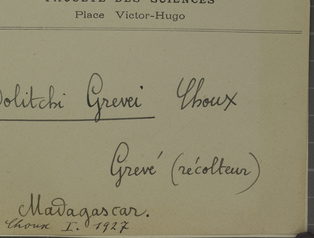 FACULTÉ DES SCIENCES
Place Victor-Hugo
Dolitchi Grevei Choux
Grevé (récolteur)
Madagascar.
Choux I. 1927